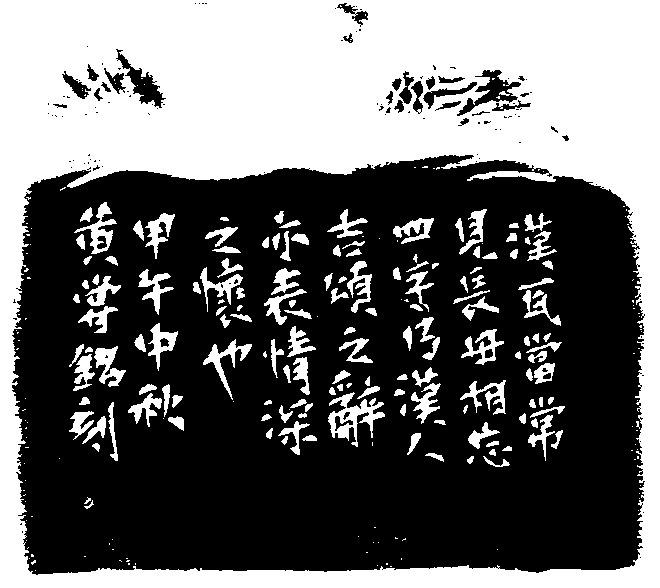 漢瓦當常
見長毋相忘
四字乃漢人
吉頌之辭
亦表情深
之懷也
甲午中秋
黃嘗銘刻